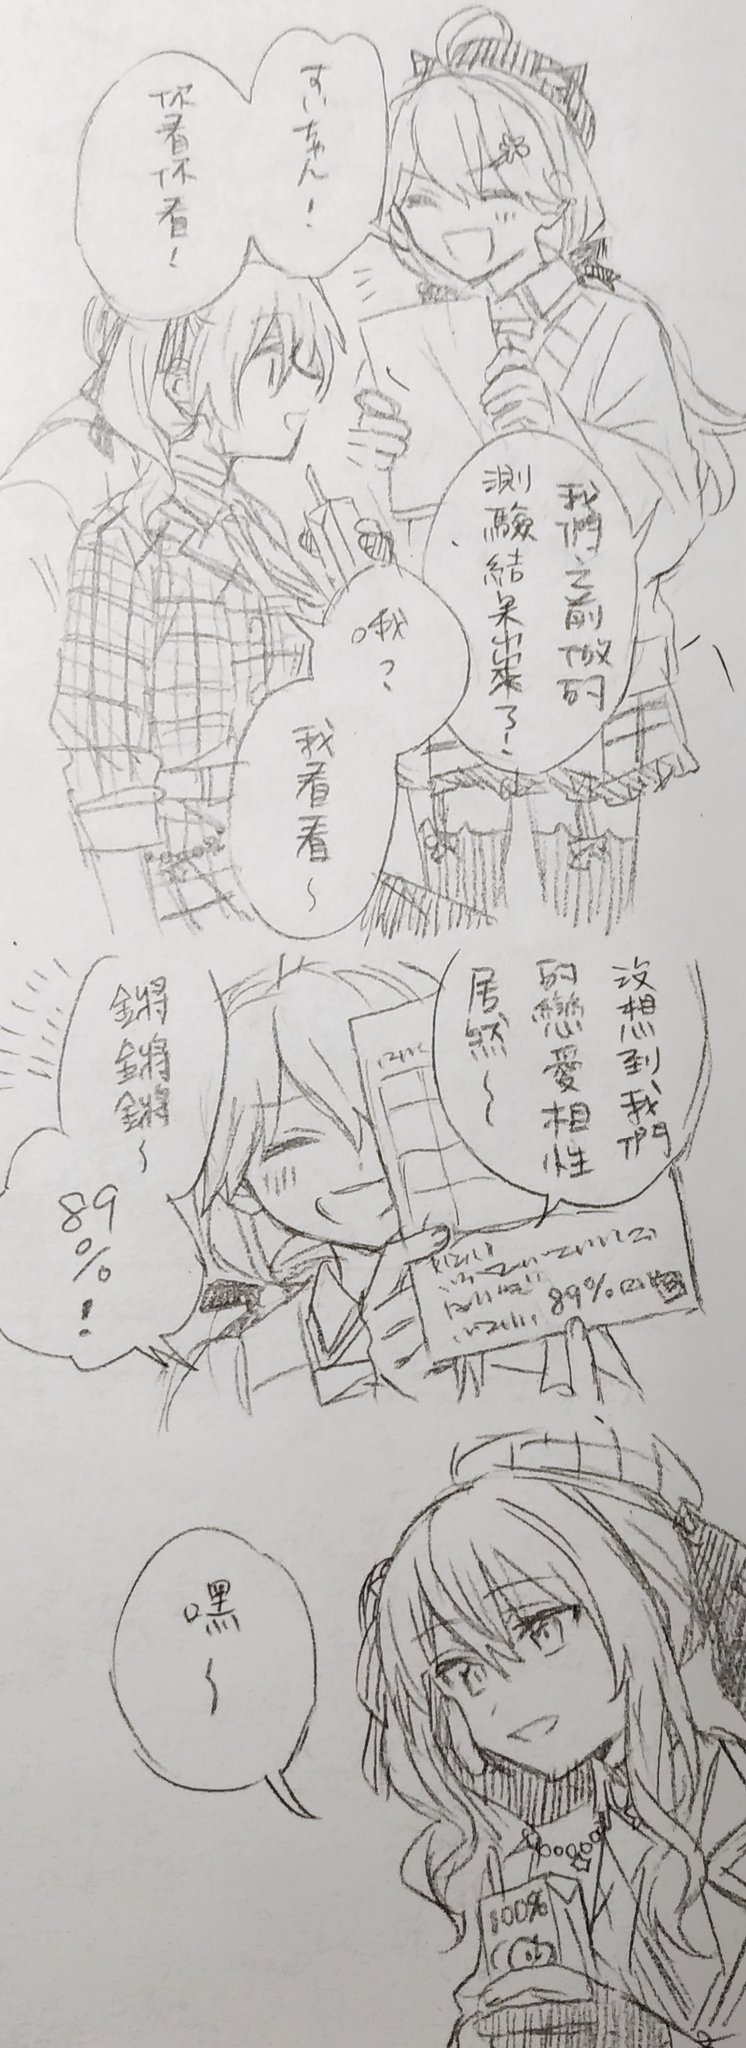 すいちゃん！
你看你看！
我們之前做的
測驗結果出來了！
哦？
我看看～
沒想到我們
的戀愛相性
居然～
鏘鏘鏘～
89%！
89%
嘿～
100%